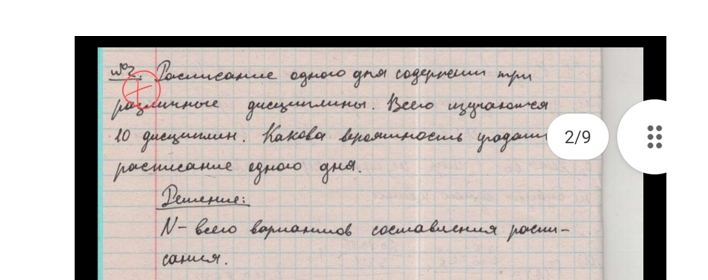 №2. Расписание одного дня содержит три
различные дисциплины. Всего изучаются
10 дисциплин. Какова вероятность угадать
2/9
расписание одного дня.
Решение:
N- всего вариантов составления распи-
сания.